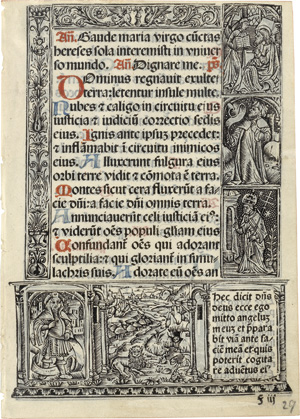 Añ. Gaude maria virgo cūctas
hereses sola interemisti in vniuer
so mundo. Añ. Dignare me. pš
DOminus regnauit exultet
terra: letentur insule multe.
Nubes & caligo in circuitu eius
iusticia & iudiciū correctio sedis
eius. Ignis ante ipsuz precedet:
et inflāmabit ī circuitu inimicos
eius. Alluxerunt fulgura eius
orbi terre vidit & cōmota ē terra.
Montes sicut cera fluxerūt a fa
cie dñi: a facie dñi omnis terra.
Annunciauerūt celi iusticiā ei⁹:
et viderūt oēs populi gliam eius
Confundant oēs qui adorant
sculptilia: & qui gloriant̄ in simu
lachris suis. Adorate eū oēs an
Hec dicit dñs
deus ecce ego
mitto angeluz
meuz et p̄para
bit viā ante fa
ciē meā et quis
poterit cogita
re aduētus ei⁹
f iij